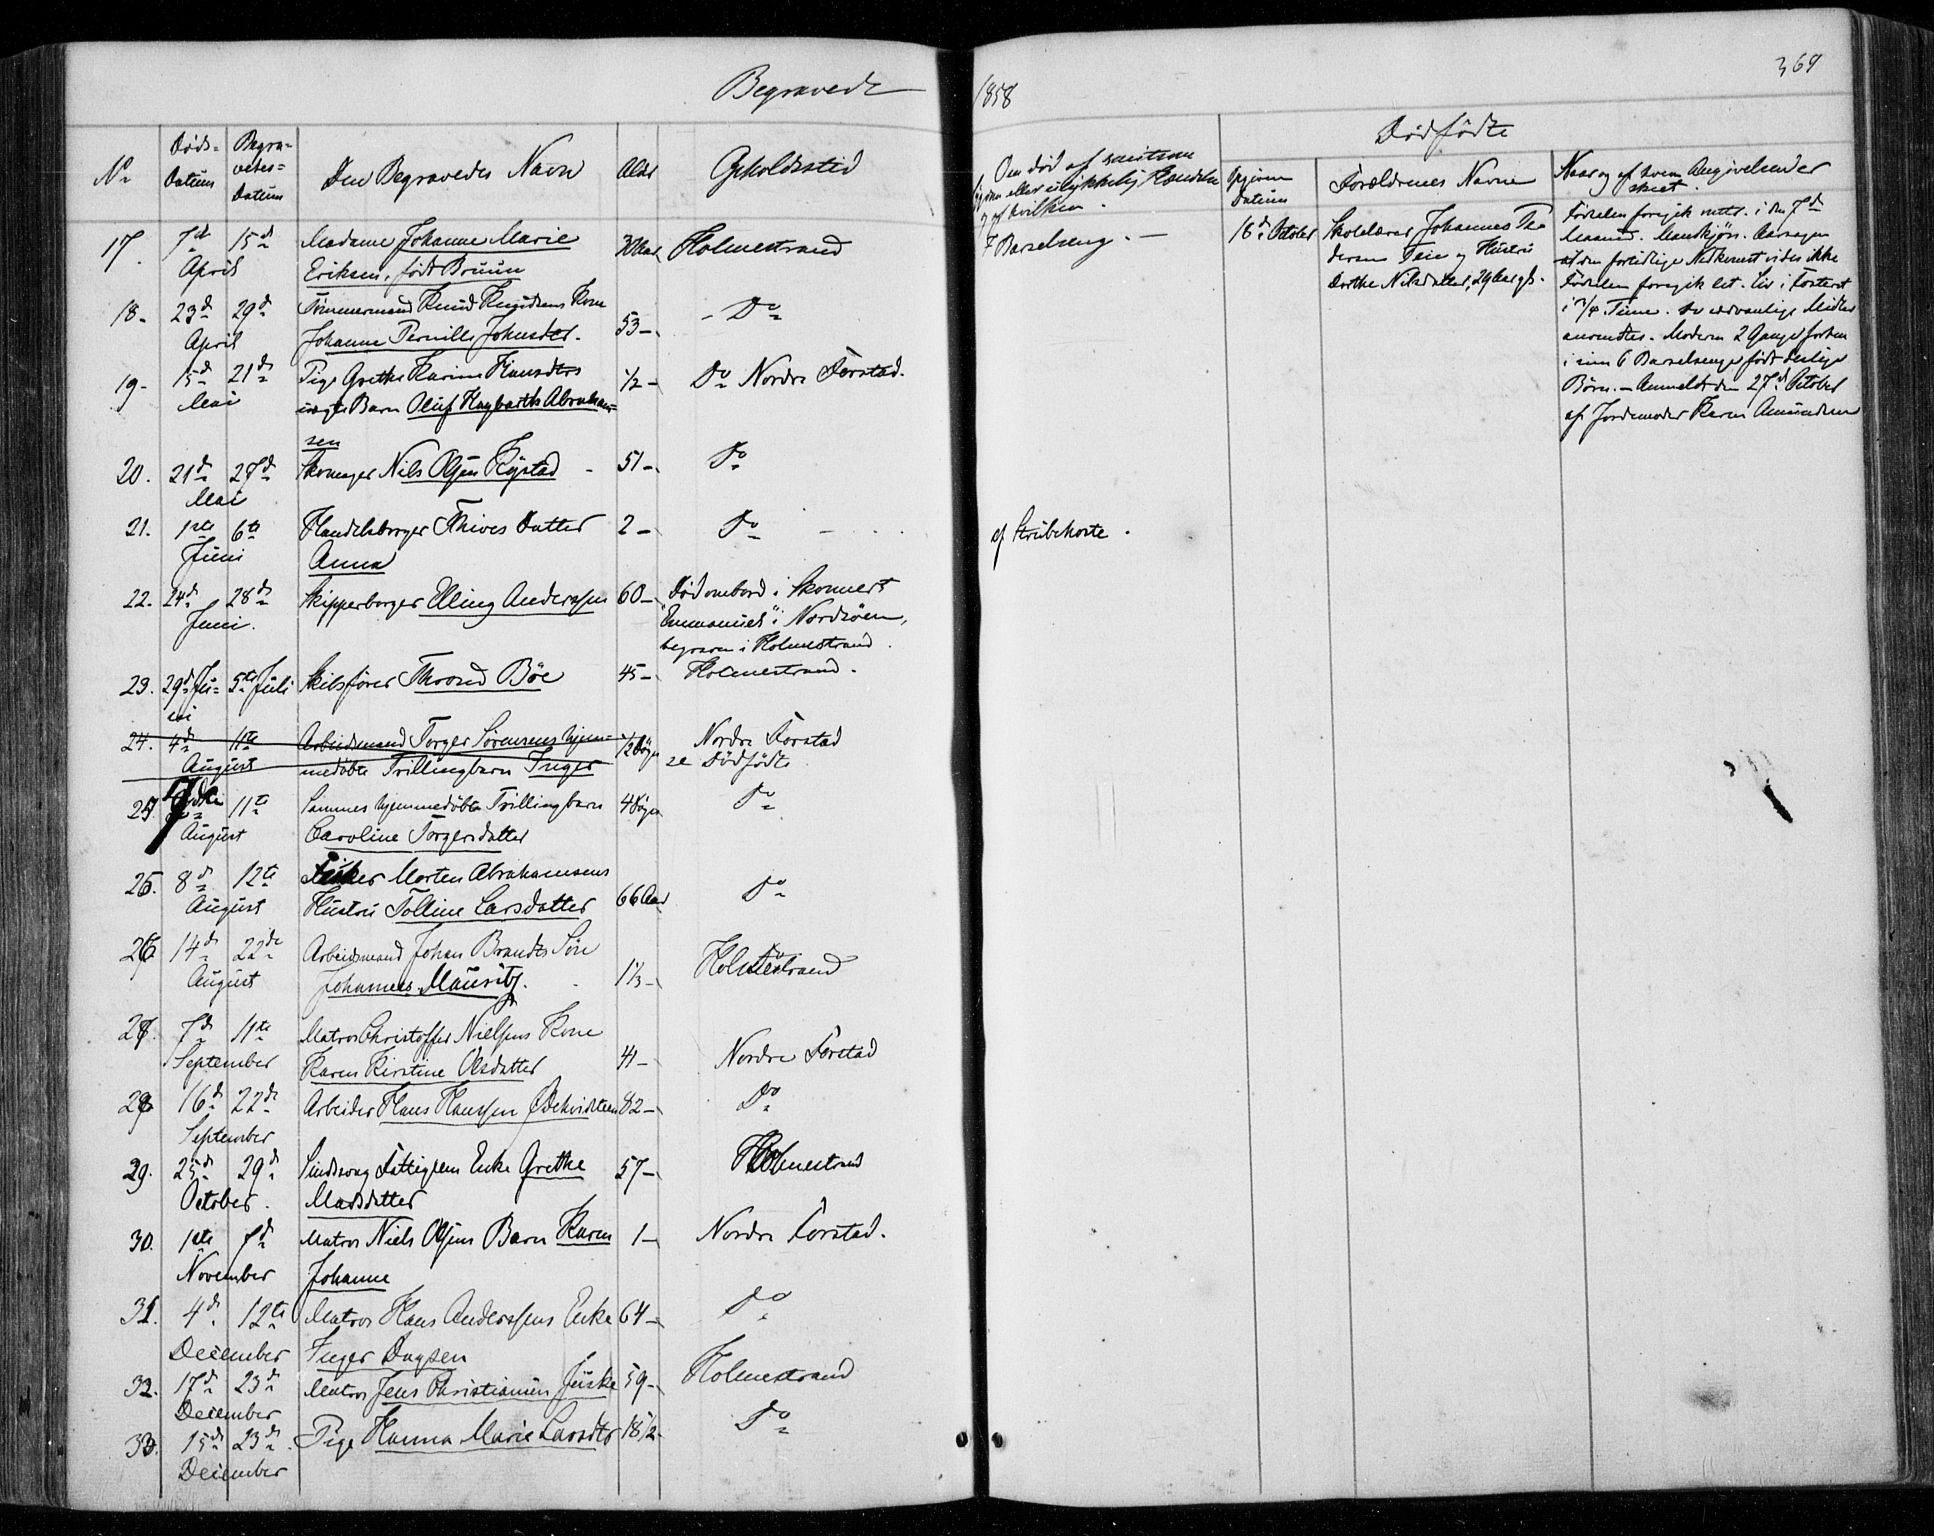 Begravede
1858
369
No
Døds-
Datum
Begra-
velses-
Datum
Den Begravedes Navn
Alder
Opholdssted
Om død af smitsom
Sygdom eller ulykkelig Hændelse
og af hvilken.
Dødfødte
Opgiven
Datum
Forældrenes Navne
Naar og af hvem Angivelsen er
skeet.
17. 7de 15de Madame Johanne Marie Holmestrand
April Eriksen, født Bruun
I Barselseng. —
18. 23de 29de Tømmermand Knud Knudsens Kone
April Johanne Pernille Johnsdtr. 53 — Do
19. 15de 21de Pige Grethe Karine Hansdtrs ½ — Do Nordre Forstad.
Mai uægte Barn Oluf Hagbarth Abraham-
sen
20. 21de 27de Skomager Nils Olsen Rystad 51 — Do
Mai
21. 1ste 6te Handelsborger Thives Datter 2 — Do
Juni Anna
af Strubehoste.
22. 24de 28de Skipperborger Elling Anderssen 60 — Død ombord i Skonnert
Juni. "Emmanuel" i Nordsøen,
begraven i Holmestrand.
23. 29de Ju- 5te Juli Skibsfører Thrond Böe 45 — Holmestrand.
ni
24. 4de 11te Arbeidsmand Torger Sørensens hjem- ½ Døgn Nordre Forstad
August medøbte Trillingbarn Inger se Dødfødte
25. 11te Sammes hjemmedøbte Trillingbarn 4 Døgn Do
August Caroline Torgersdatter
26. 8de 12te Fisker Morten Abrahamsens
August Hustru Tolline Larsdatter 66 Aar Do
26 14de 22de Arbeidsmand Johan Brandts Søn Holmestrand
August Johannes Mauritz. 1⅓ —
27. 7de 11te Matros Christoffer Nielsens Kone
September Karen Kirstine Olsdatter 41 — Nordre Forstad
28 16de 22de Arbeider Hans Hanssen 82 — Do
September
29. 25de 29de Sindssvag Fattiglem Enke Grethe 57 — Holmestrand
October. Madsdatter
30. 1ste 7de Matros Niels Olsens Barn Karen 1 — Nordre Forstad.
November Johanne
31. 4de 12te Matros Hans Anderssens Enke 64 — Do
December Inger Dagsen
32. 17de 23de Matros Jens Christiansen Juske 59 — Holmestrand
December
33. 15de 23de. Pige Hanna Marie Larsdtr 18½ — Do
December
18de October
Skolelærer Johannes Pe
dersen Teie og Hustru
Dorthe Nilsdatter, 29 Aar gl.
Fødselen foregik i den 7de
Maaned. Mandkjøn. Aarsagen
til den fortidlige Nedkomst vides ikke
Fødselen foregik let. Liv i Fosteret
i ¼ Time. De sædvanlige Midler
anvendtes. Moderen 2 Gange forhen
i sine 6 Barselsenge født
Børn. — Anmeldt den 27de October
af Jordemoder Karen Amundsen